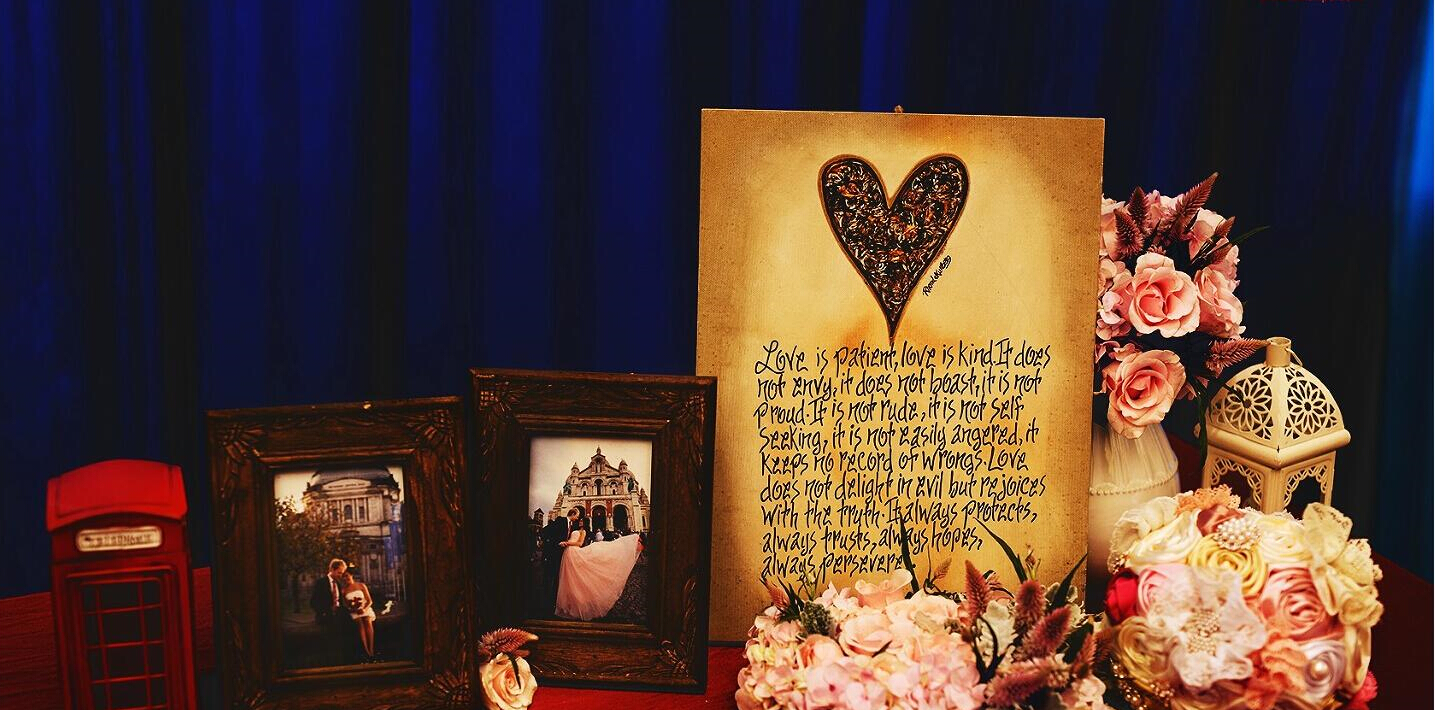 Love is patient, love is kind. It does
not envy, it does not boast, it is not
proud. It is not rude, it is not self
seeking, it is not easily angered, it
keeps no record of wrongs. Love
does not delight in evil but rejoices
with the truth. It always protects,
always trusts, always hopes,
always persevere